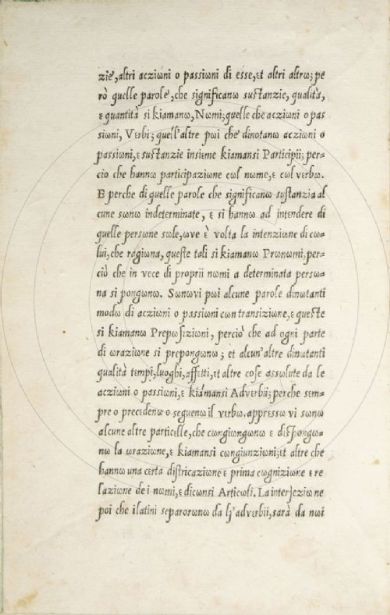 zie, altri acziωni o passiωni di esse, et altri altrω; pe
rò quelle parole, che significanω sustanzie, qualità,
ε quantità si kiamanω, Nωmi; quelle che acziωni o pas
siωni, Vεrbi; quell'altre pωi che dinotanω acziωni o
passiωni, ε sustanzie insieme kiamansi Participii; per-
ciò che hannω participazione cωl nωme, ε cωl vεrbω.
E perche di quelle parole che significanω sustanzia al
cune sωnω indeterminate, ε si hannω ad intendere di
quelle persωne sωle, ωve ὲ vωlta la intenziωne di cω-
lui, che ragiωna, queste tali si kiamanω Prωnωmi, per-
ciò che in vece di proprii nωmi a determinata persω-
na si pωngωnω. Sωnωvi pωi alcune parole dinωtanti
mωdω di acziωni o passiωni cωn transiziωne, ε queste
si kiamanω Prepωsiziωni, perciò che ad ogni parte
di ωraziωne si prepωngωnω; et alcun'altre dinωtanti
qualità tempi, luωghi, affetti, et altre cose assωlute da le
acziωni o passiωni, ε kiamansi Advεrbii; perche sem-
pre o precedenω o seguenω il vεrbω. appressω vi sωnω
alcune altre particelle, che cωngiωngωnω ε dispωngω-
nω la ωraziωne, ε kiamansi cωngiunziωni; et altre che
hannω una cεrta districaziωne ε prima cωgniziωne ε re
laziωne de i nωmi, ε dicωnsi Articωli. La interjeziωne
poi che i latini separorωnω da lj'advεrbii, sarà da nωi